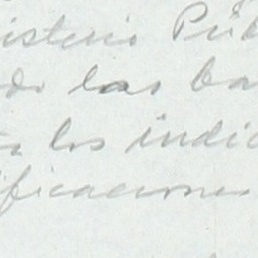 isterio Púb
do las ba
los indic
ificaciones